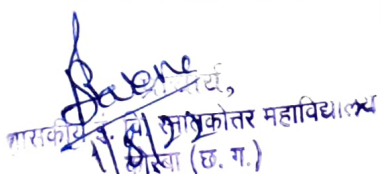 प्राचार्य,
शासकीय इ. वि. स्नातकोत्तर महाविद्यालय
कोरबा (छ. ग.)